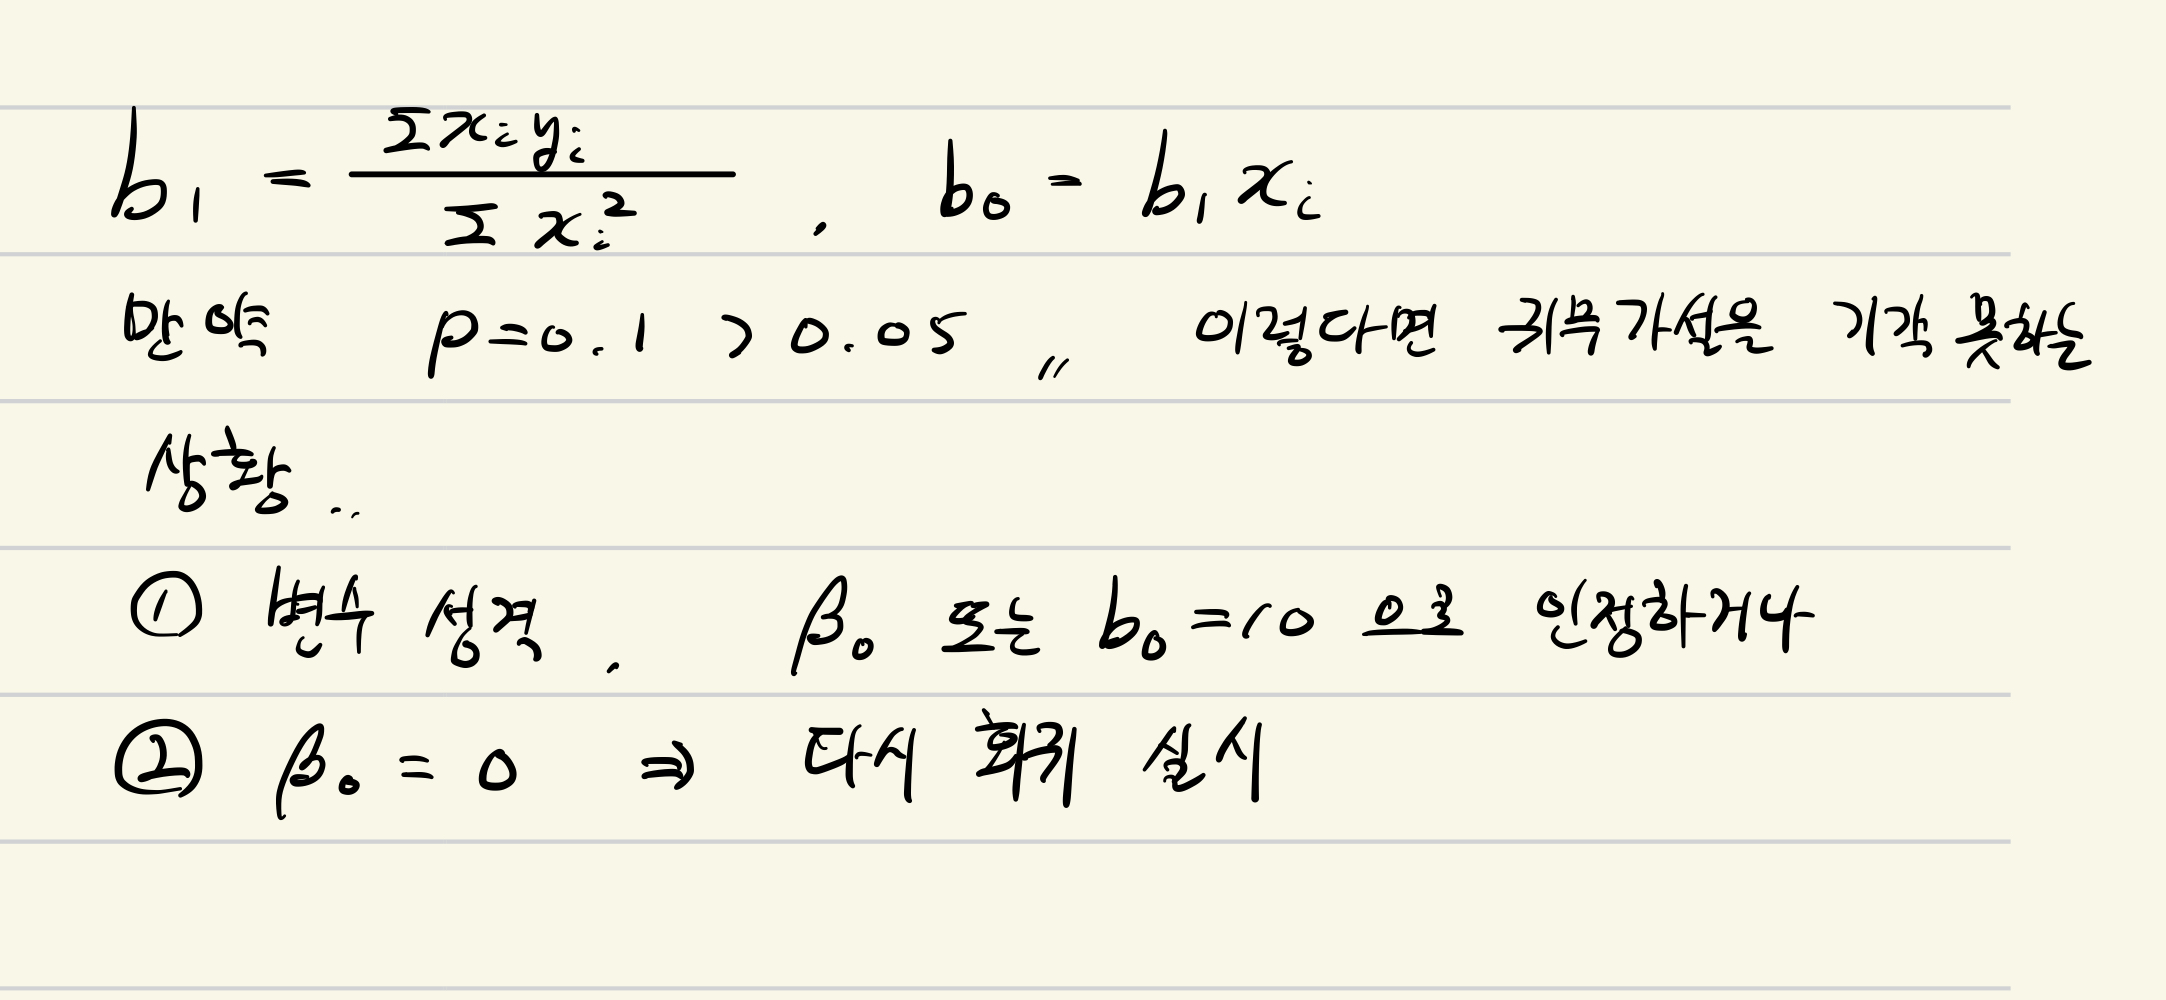 b₁ = Σxᵢyᵢ / Σxᵢ² , b₀ = b₁xᵢ
만약 p=0.1 > 0.05 〃 이렇다면 귀무가설은 기각 못하는
상황..
① 변수 성격, β₀ 또는 b₀=10 으로 인정하거나
② β₀ = 0 ⇒ 다시 회귀 실시